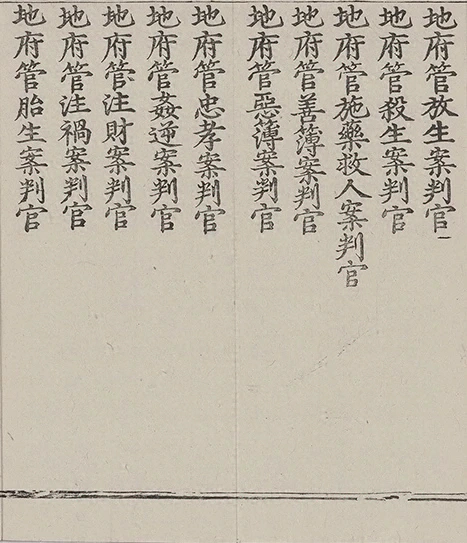 地府管放生案判官
地府管殺生案判官
地府管施藥救人案判官
地府管善簿案判官
地府管惡簿案判官
地府管忠孝案判官
地府管姦逆案判官
地府管注財案判官
地府管注禍案判官
地府管胎生案判官